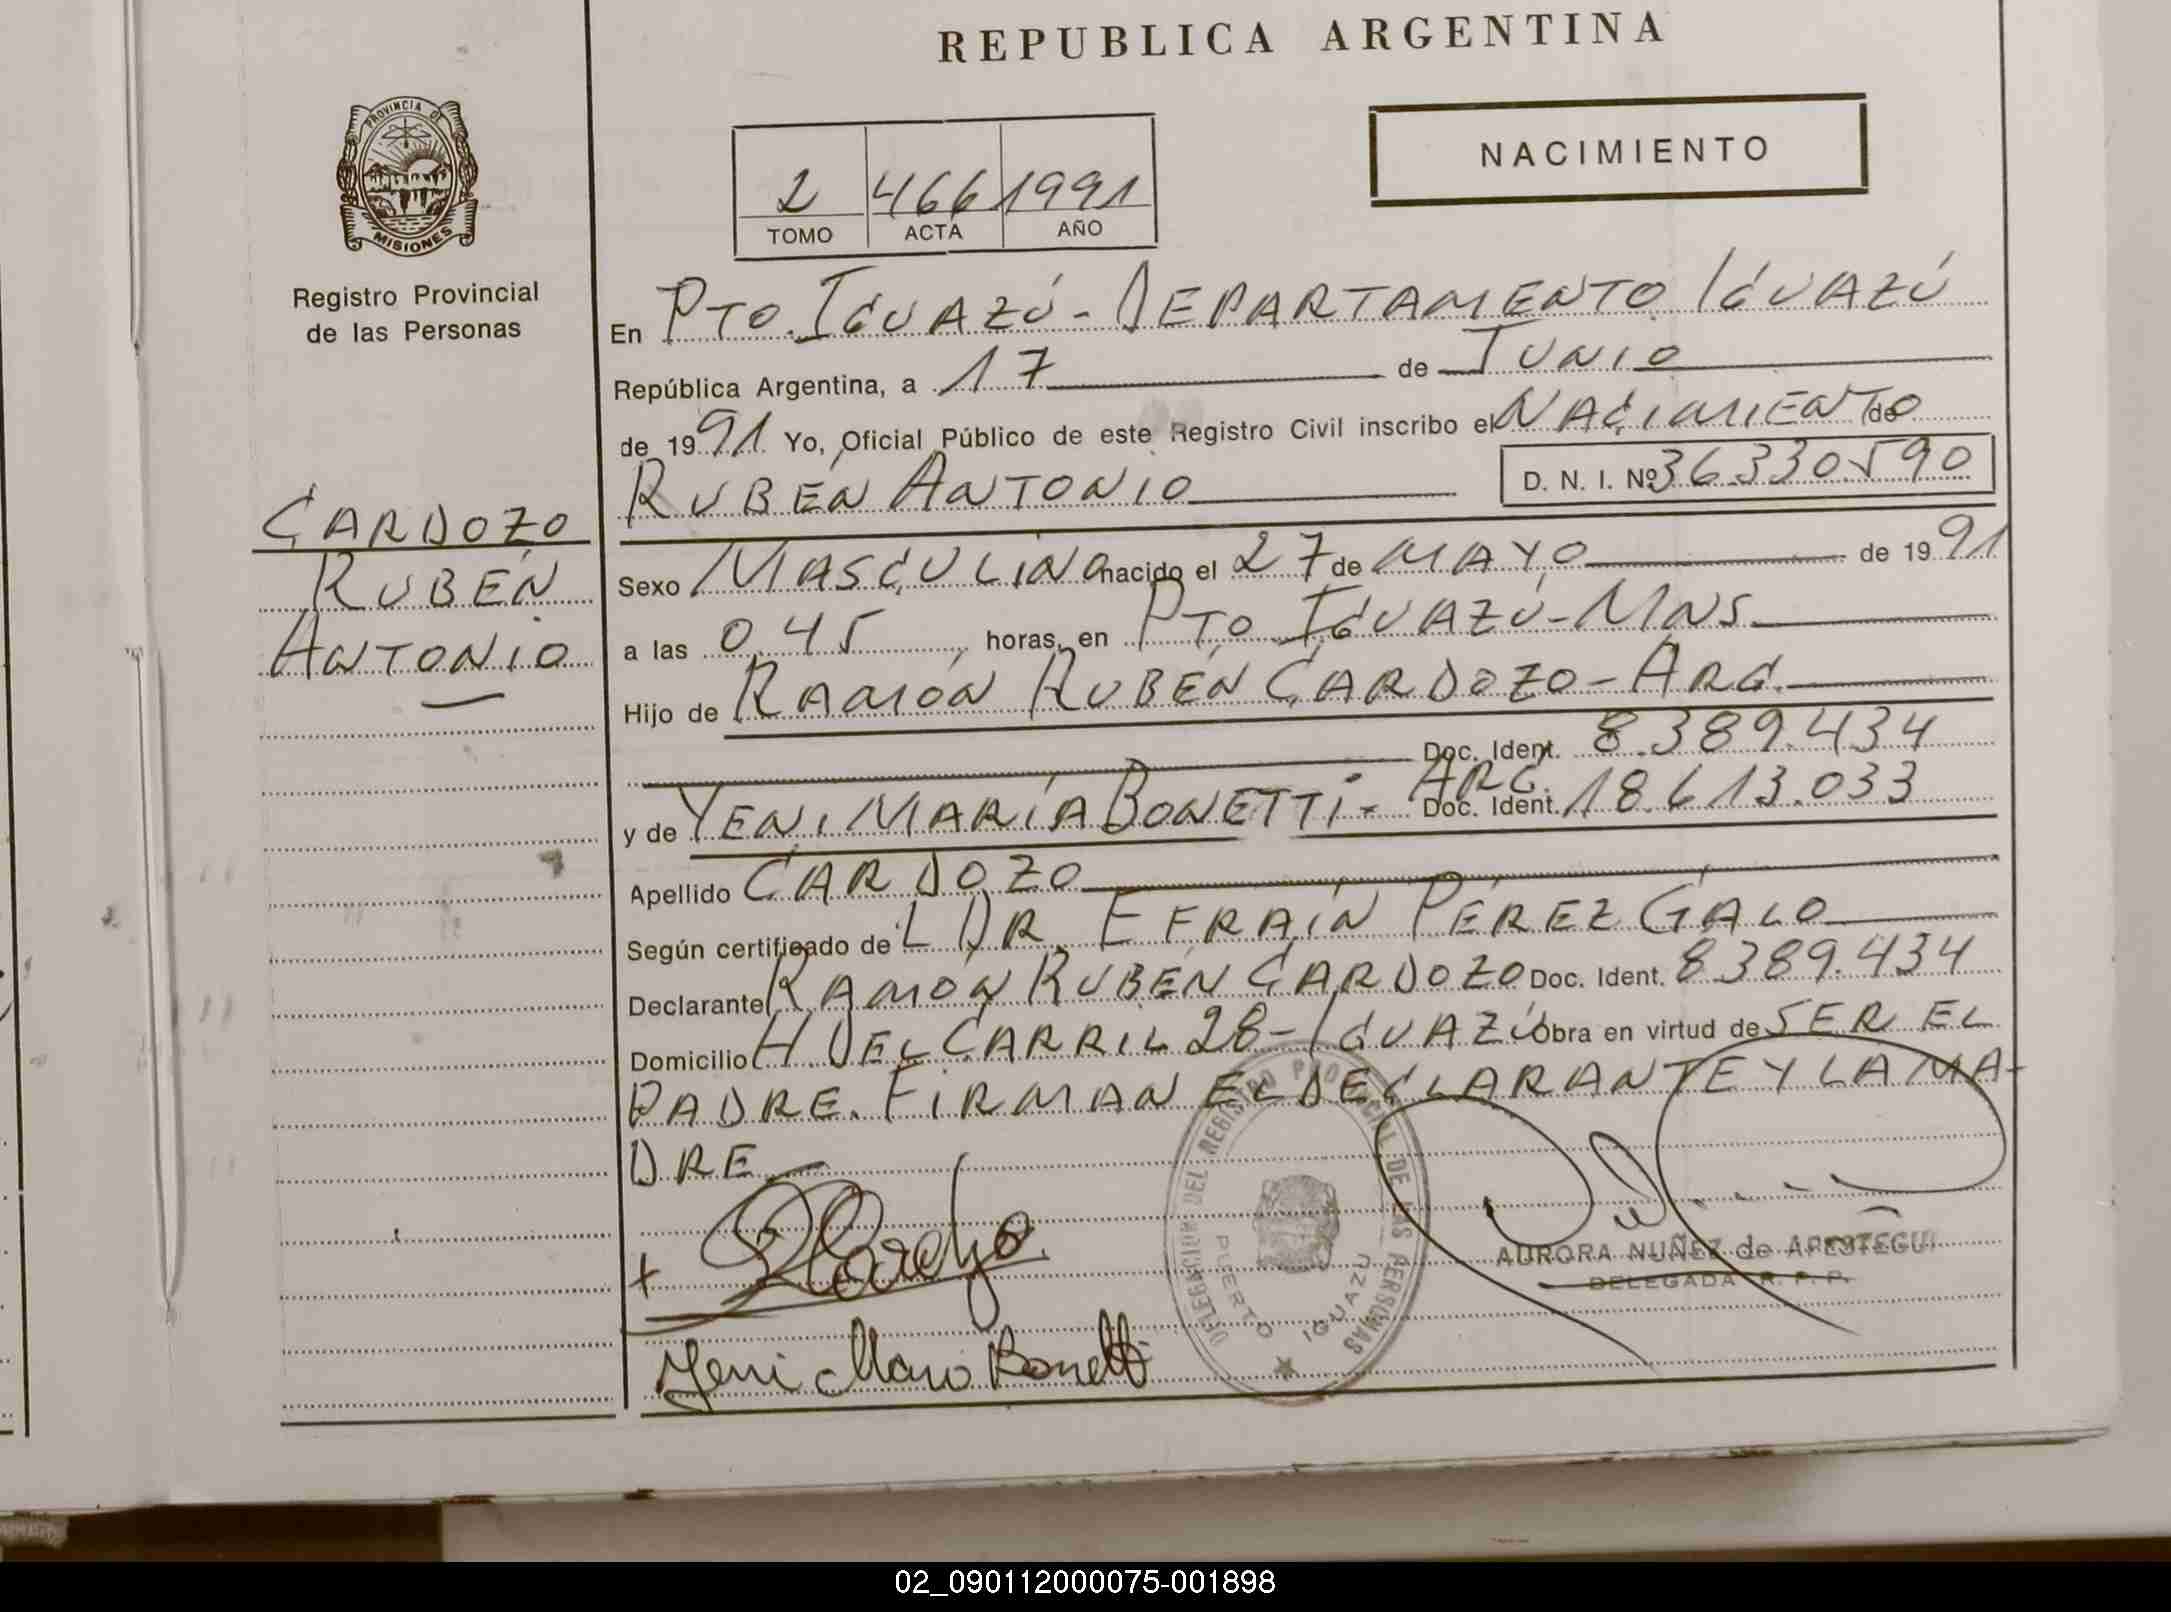 REPUBLICA ARGENTINA
PROVINCIA DE
MISIONES
Registro Provincial
de las Personas
NACIMIENTO
2 466 1991
TOMO ACTA AÑO
En PTO. IGUAZÚ - DEPARTAMENTO IGUAZÚ
República Argentina, a 17 de JUNIO
de 1991 Yo, Oficial Público de este Registro Civil inscribo el NACIMIENTO de
RUBÉN ANTONIO D. N. I. Nº 36330590
CARDOZO
RUBÉN
ANTONIO
Sexo MASCULINO nacido el 27 de MAYO de 1991
a las 0,45 horas, en PTO. IGUAZÚ - MNS.
Hijo de RAMÓN RUBÉN CARDOZO - ARG.
Doc. Ident. 8.389.434
y de YENI MARÍA BONETTI - ARG. Doc. Ident. 18.613.033
Apellido CARDOZO
Según certificado de L DR. EFRAÍN PÉREZ GALO
Declarante RAMÓN RUBÉN CARDOZO Doc. Ident. 8389.434
Domicilio H. DEL CARRIL 28 - IGUAZÚ Obra en virtud de SER EL
PADRE. FIRMAN EL DECLARANTE Y LA MA-
DRE
DELEGACION DEL REGISTRO PROVINCIAL DE LAS PERSONAS
PUERTO IGUAZU
AURORA NUÑEZ de APESTEGUI
DELEGADA R. P. P.
+ RCardozo
Yeni Maria Bonetti
02_090112000075-001898